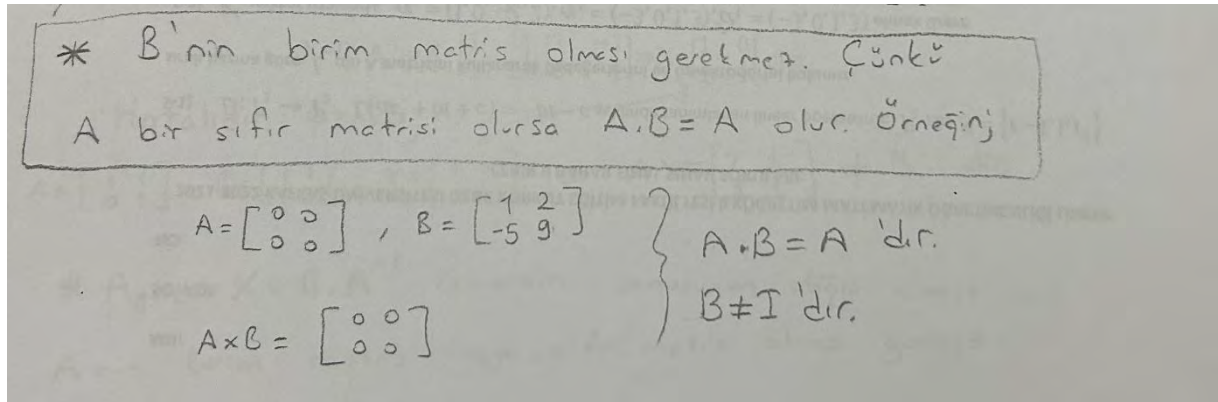 * B'nin birim matris olması gerekmez. Çünkü
A bir sıfır matrisi olursa A.B = A olur. Örneğin;
A = [0 0 0 0] , B = [1 2 -5 9] } A.B = A 'dır.
B ≠ I 'dır.
A×B = [0 0 0 0]